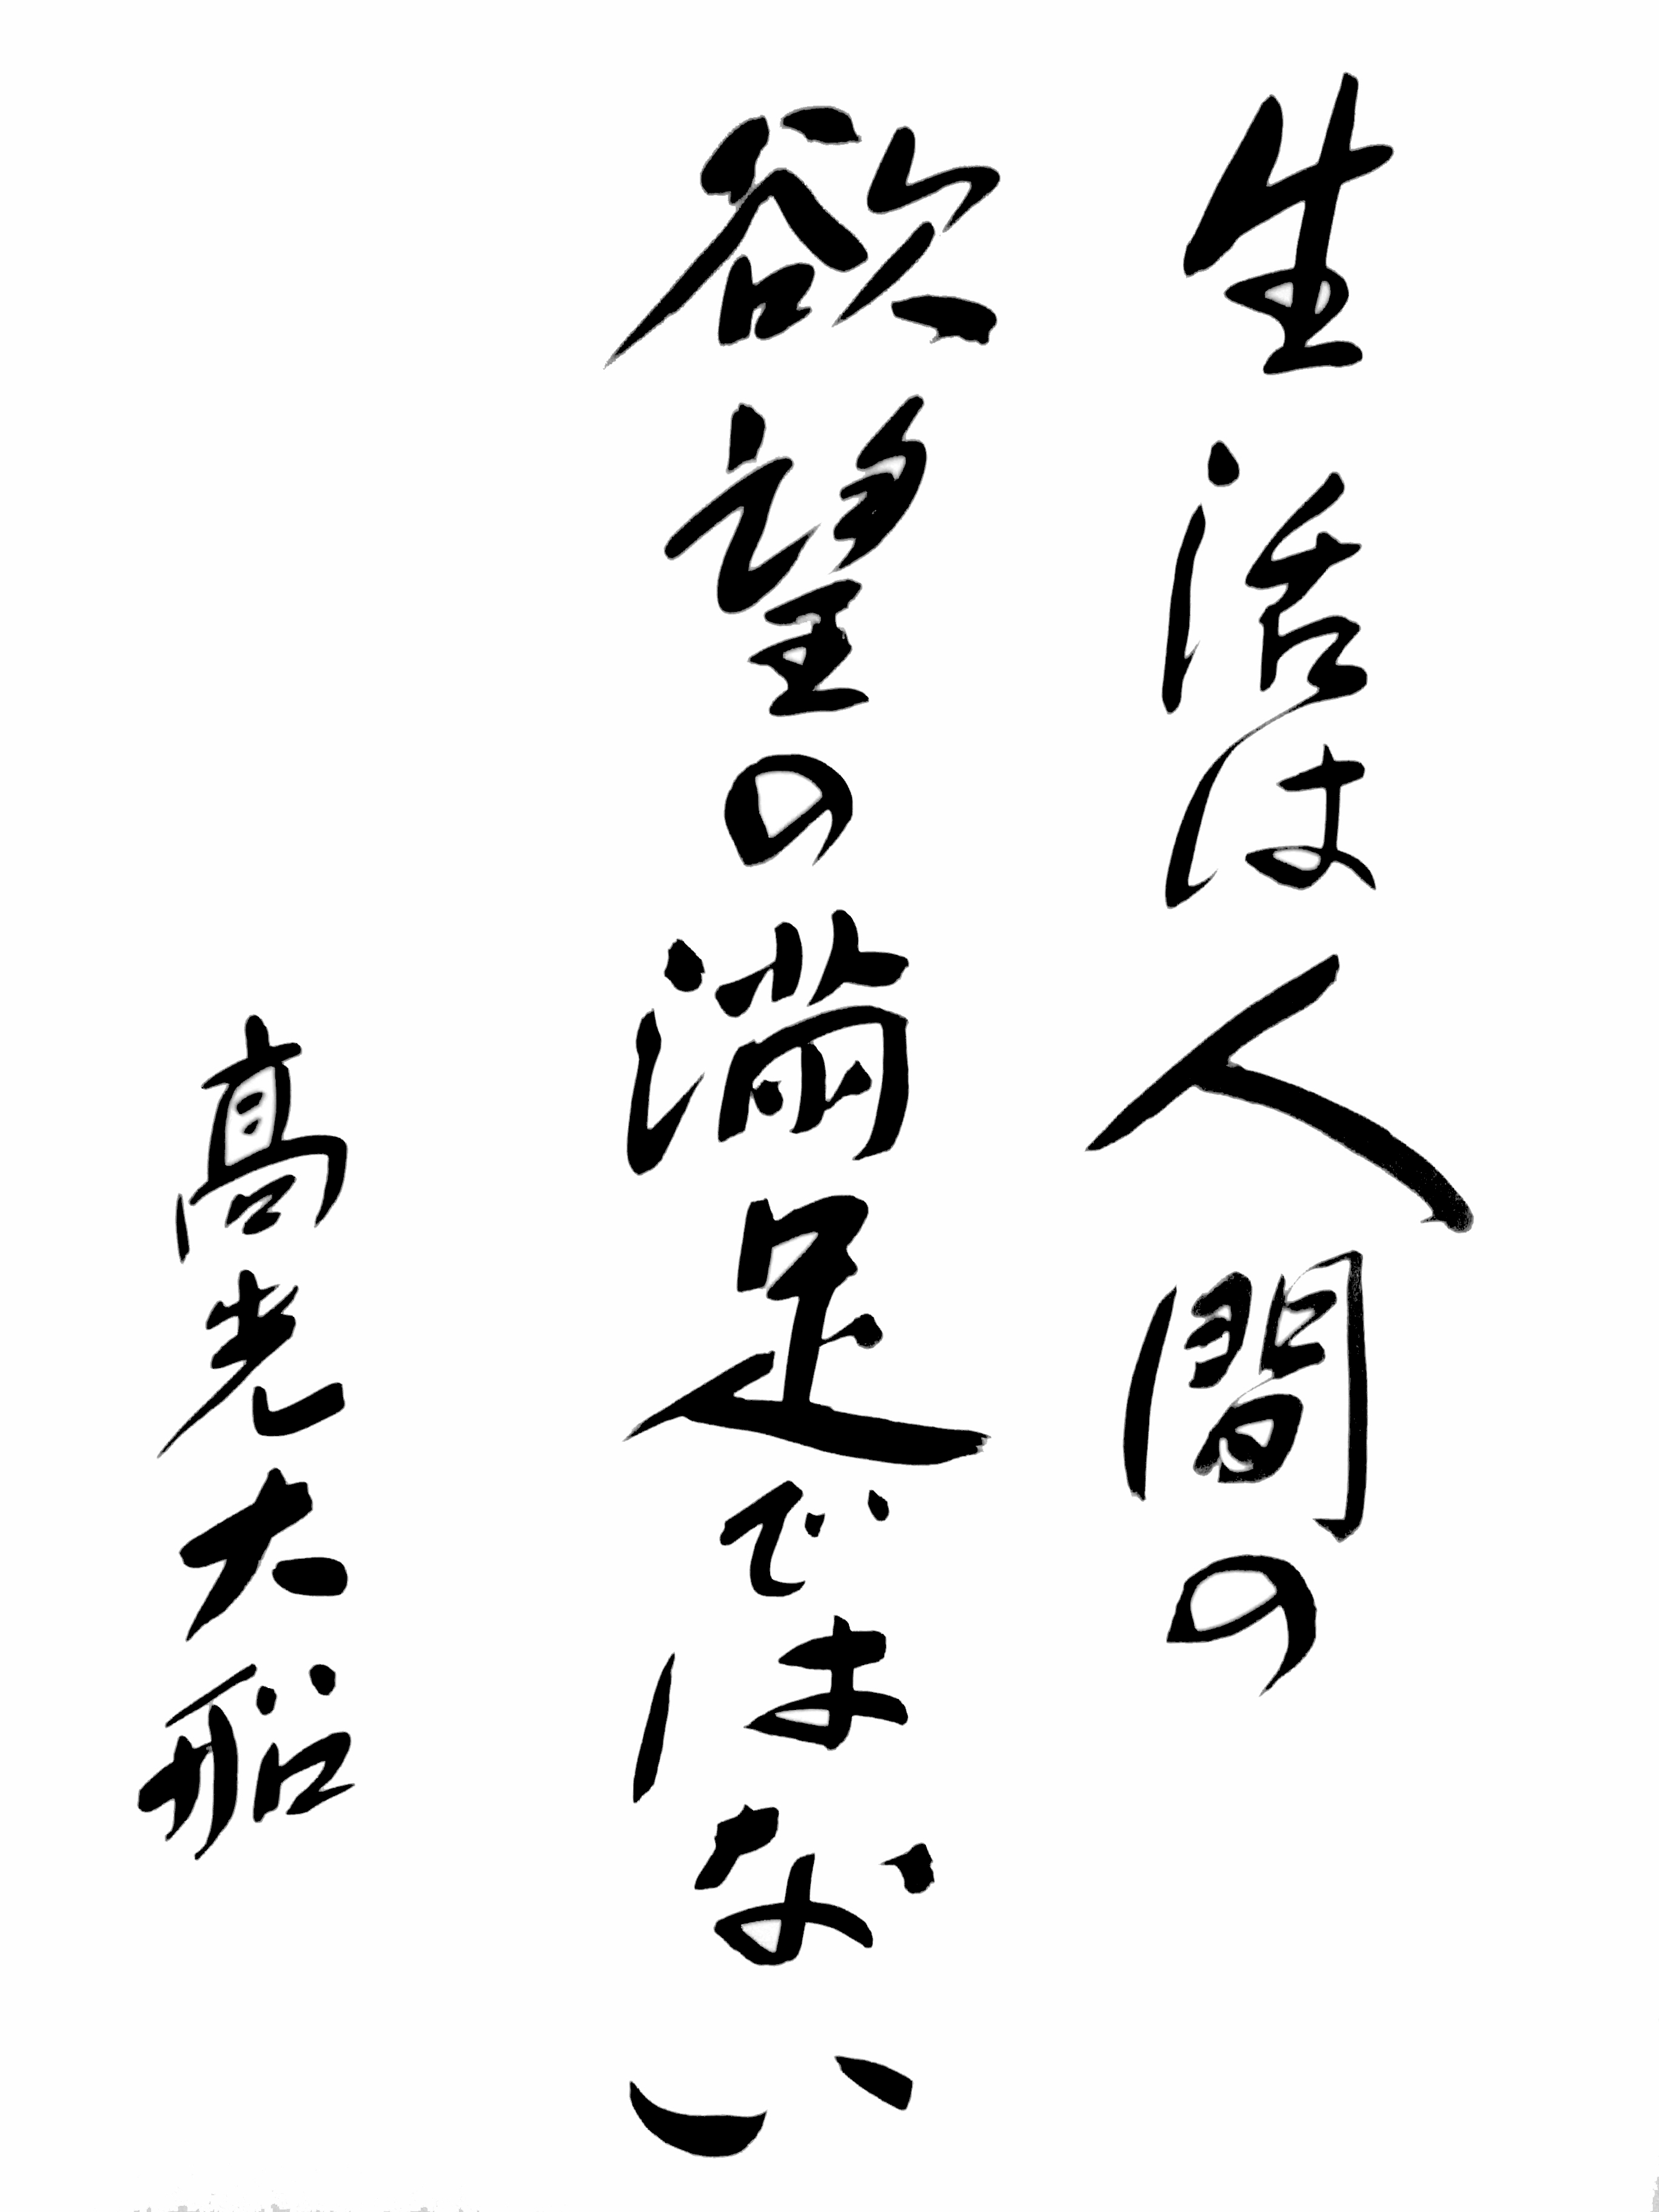 生活は人間の
欲望の満足ではない
高光大船